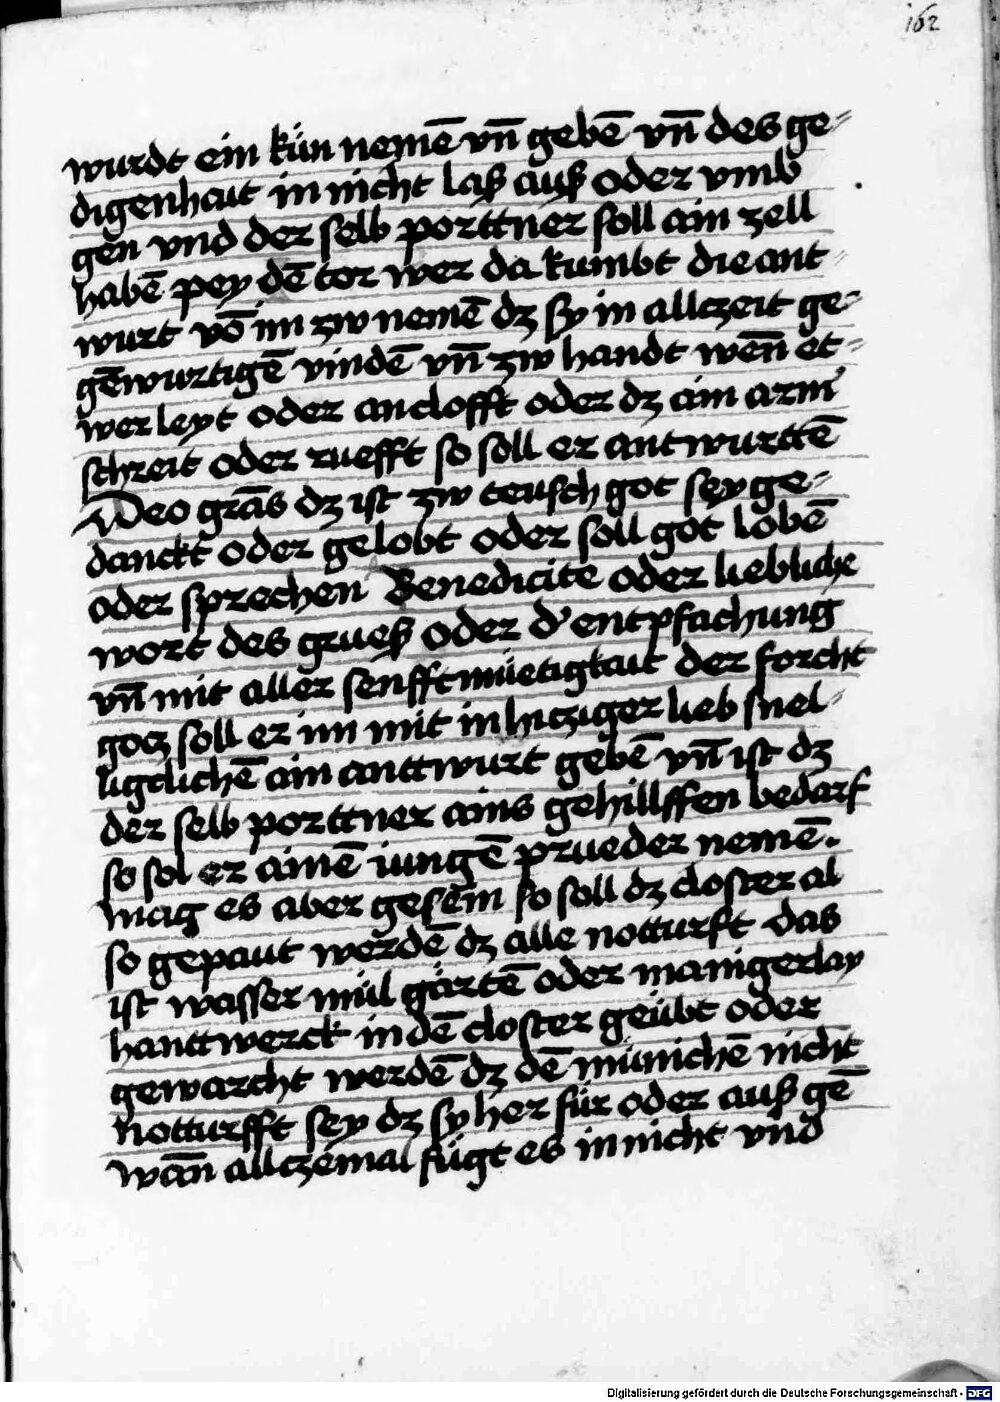 162
wurdt ein kün nemē vn̄ gebē vn̄ des ge⸗
digenhait in nicht laß auß oder vmb
gen vnd der selb porttner soll ain zell
habē pey dē tor wer da kumbt die ant⸗
wurt vō im zw nemē dz sy in allczeit ge⸗
gēwurtigē vindē vn̄ zw handt wēn et⸗
wer leyt oder anclofft oder dz ain arm
schreit oder ruefft so soll er antwurttē
Deo grās dz ist zw teusch got sey ge⸗
danckt oder gelobt oder soll got lobē
oder sprechen Benedicite oder liebliche
wort des grueß oder d' entpfachung
vn̄ mit aller senfftmüetigkait der forcht
gocz soll er im mit inhicziger lieb snel⸗
liglichē ain anttwurt gebē vn̄ ist dz
der selb porttner ains gehillffen bedarf
so sol er ainē iungē prueder nemē.
mag es aber gesein so soll dz closter al
so gepaut werdē dz alle notturft das
ist wasser mül gärtē oder manigerlay
hanttwerck in dē closter geübt oder
gewarcht werdē dz dē münichē nicht
notturfft sey dz sy her für oder auß gē
wān allczemal fügt es in nicht vnd
Digitalisierung gefördert durch die Deutsche Forschungsgemeinschaft - DFG